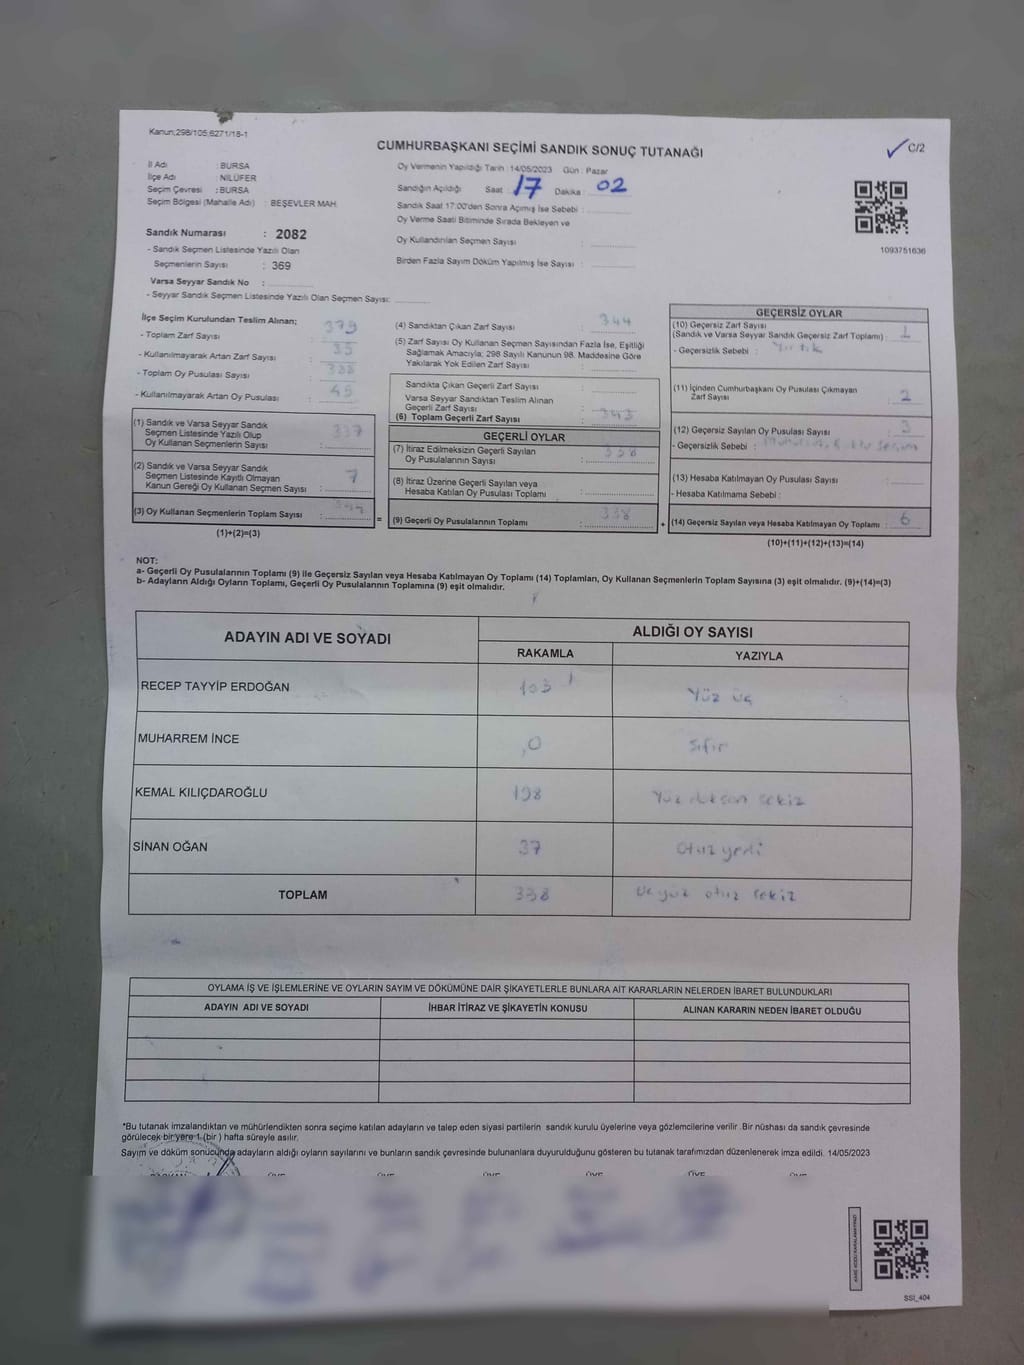 Kanun;298/105,6271/18-1
CUMHURBAŞKANI SEÇİMİ SANDIK SONUÇ TUTANAĞI
C/2
İl Adı : BURSA
İlçe Adı : NİLÜFER
Seçim Çevresi : BURSA
Seçim Bölgesi (Mahalle Adı) : BEŞEVLER MAH.
Oy Vermenin Yapıldığı Tarih : 14/05/2023 Gün : Pazar
Sandığın Açıldığı Saat : 17 Dakika : 02
Sandık Saat 17:00'den Sonra Açımış İse Sebebi :
Oy Verme Saati Bitiminde Sırada Bekleyen ve
Oy Kullandırılan Seçmen Sayısı :
Birden Fazla Sayım Döküm Yapılmış İse Sayısı :
1093751636
Sandık Numarası : 2082
- Sandık Seçmen Listesinde Yazılı Olan
Seçmenlerin Sayısı : 369
Varsa Seyyar Sandık No :
- Seyyar Sandık Seçmen Listesinde Yazılı Olan Seçmen Sayısı:
İlçe Seçim Kurulundan Teslim Alınan;
- Toplam Zarf Sayısı : 379
- Kullanılmayarak Artan Zarf Sayısı : 35
- Toplam Oy Pusulası Sayısı :
- Kullanılmayarak Artan Oy Pusulası : 45
(1) Sandık ve Varsa Seyyar Sandık
Seçmen Listesinde Yazılı Olup
Oy Kullanan Seçmenlerin Sayısı : 337
(2) Sandık ve Varsa Seyyar Sandık
Seçmen Listesinde Kayıtlı Olmayan
Kanun Gereği Oy Kullanan Seçmen Sayısı : 7
(3) Oy Kullanan Seçmenlerin Toplam Sayısı : 344
(1)+(2)=(3)
(4) Sandıktan Çıkan Zarf Sayısı : 344
(5) Zarf Sayısı Oy Kullanan Seçmen Sayısından Fazla İse, Eşitliği
Sağlamak Amacıyla; 298 Sayılı Kanunun 98. Maddesine Göre
Yakılarak Yok Edilen Zarf Sayısı :
Sandıkta Çıkan Geçerli Zarf Sayısı :
Varsa Seyyar Sandıktan Teslim Alınan
Geçerli Zarf Sayısı :
(6) Toplam Geçerli Zarf Sayısı : 343
GEÇERLİ OYLAR
(7) İtiraz Edilmeksizin Geçerli Sayılan
Oy Pusulalarının Sayısı : 338
(8) İtiraz Üzerine Geçerli Sayılan veya
Hesaba Katılan Oy Pusulası Toplamı :
= (9) Geçerli Oy Pusulalarının Toplamı : 338
GEÇERSİZ OYLAR
(10) Geçersiz Zarf Sayısı
(Sandık ve Varsa Seyyar Sandık Geçersiz Zarf Toplamı) : 1
- Geçersizlik Sebebi : Yırtık
(11) İçinden Cumhurbaşkanı Oy Pusulası Çıkmayan
Zarf Sayısı : 2
(12) Geçersiz Sayılan Oy Pusulası Sayısı : 3
- Geçersizlik Sebebi :
(13) Hesaba Katılmayan Oy Pusulası Sayısı :
- Hesaba Katılmama Sebebi :
+ (14) Geçersiz Sayılan veya Hesaba Katılmayan Oy Toplamı : 6
(10)+(11)+(12)+(13)=(14)
NOT:
a- Geçerli Oy Pusulalarının Toplamı (9) ile Geçersiz Sayılan veya Hesaba Katılmayan Oy Toplamı (14) Toplamları, Oy Kullanan Seçmenlerin Toplam Sayısına (3) eşit olmalıdır. (9)+(14)=(3)
b- Adayların Aldığı Oyların Toplamı, Geçerli Oy Pusulalarının Toplamına (9) eşit olmalıdır.
ADAYIN ADI VE SOYADI
ALDIĞI OY SAYISI
RAKAMLA YAZIYLA
RECEP TAYYİP ERDOĞAN 103 Yüz üç
MUHARREM İNCE 0 Sıfır
KEMAL KILIÇDAROĞLU 198 Yüz doksan sekiz
SİNAN OĞAN 37 Otuz yedi
TOPLAM 338 Üç yüz otuz sekiz
OYLAMA İŞ VE İŞLEMLERİNE VE OYLARIN SAYIM VE DÖKÜMÜNE DAİR ŞİKAYETLERLE BUNLARA AİT KARARLARIN NELERDEN İBARET BULUNDUKLARI
ADAYIN ADI VE SOYADI İHBAR İTİRAZ VE ŞİKAYETİN KONUSU ALINAN KARARIN NEDEN İBARET OLDUĞU
*Bu tutanak imzalandıktan ve mühürlendikten sonra seçime katılan adayların ve talep eden siyasi partilerin sandık kurulu üyelerine veya gözlemcilerine verilir .Bir nüshası da sandık çevresinde
görülecek bir yere 1 (bir ) hafta süreyle asılır.
Sayım ve döküm sonucunda adayların aldığı oyların sayılarını ve bunların sandık çevresinde bulunanlara duyurulduğunu gösteren bu tutanak tarafımızdan düzenlenerek imza edildi. 14/05/2023
SSI_404